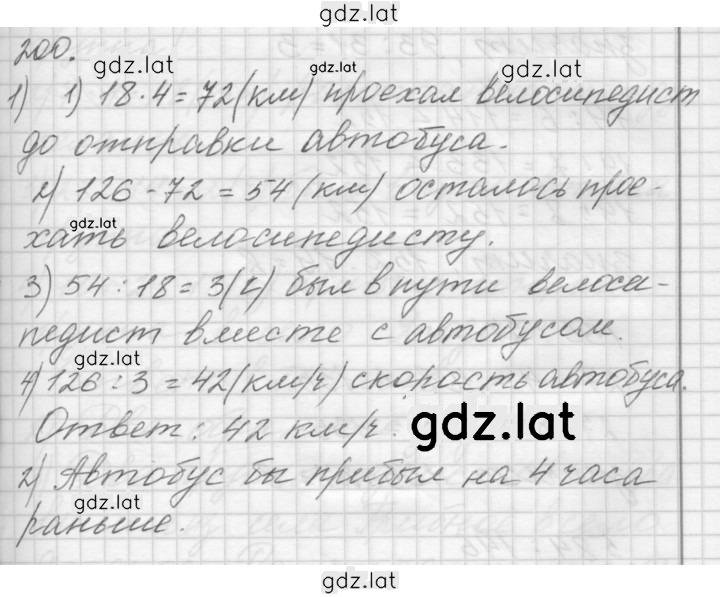 gdz.lat
200.
gdz.lat
gdz.lat
1) 1) 18·4=72(км) проехал велосипедист
до отправки автобуса.
2) 126-72=54(км) осталось прое-
gdz.lat
хать велосипедисту.
3) 54:18=3(ч) был в пути велоси-
педист вместе с автобусом.
gdz.lat
4) 126:3=42(км/ч) скорость автобуса.
Ответ: 42 км/ч.
gdz.lat
2) Автобус бы прибыл на 4 часа
gdz.lat
раньше.
gdz.lat